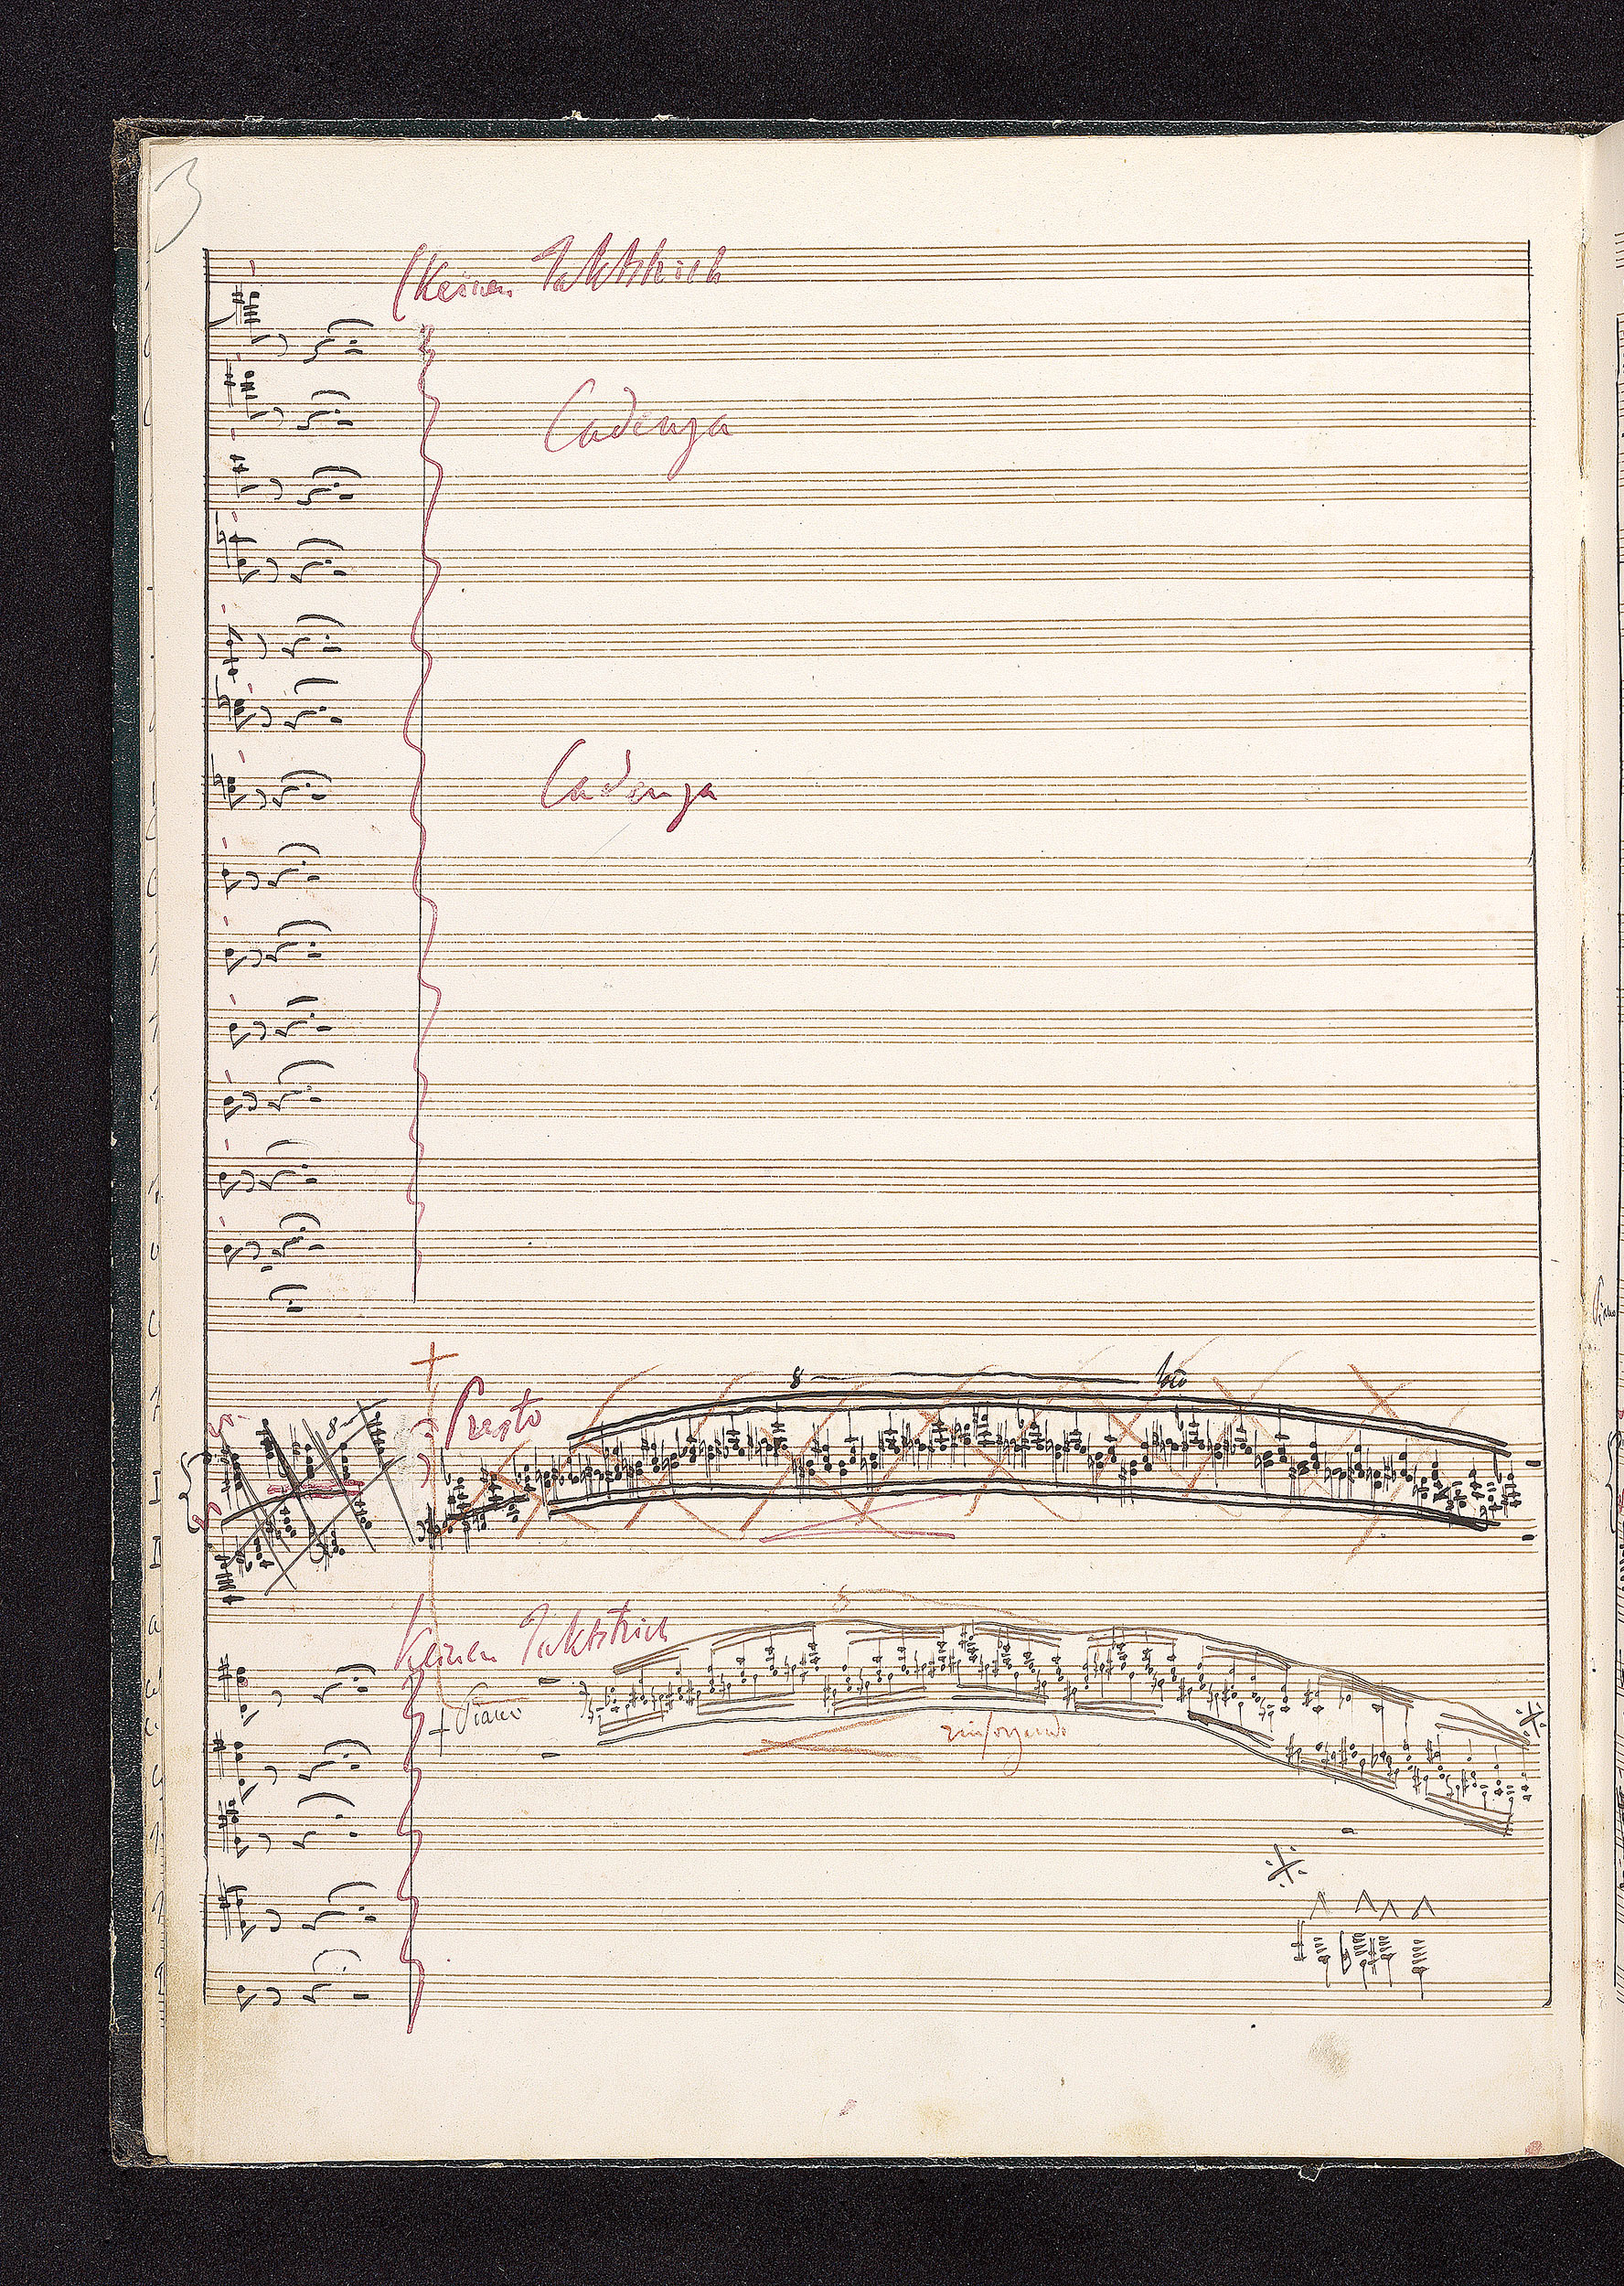 3
(Keinen Taktstrich
Cadenza
Cadenza
8 loco
Presto
8
8
Keinen Taktstrich
Piano
rinforzando
Piano